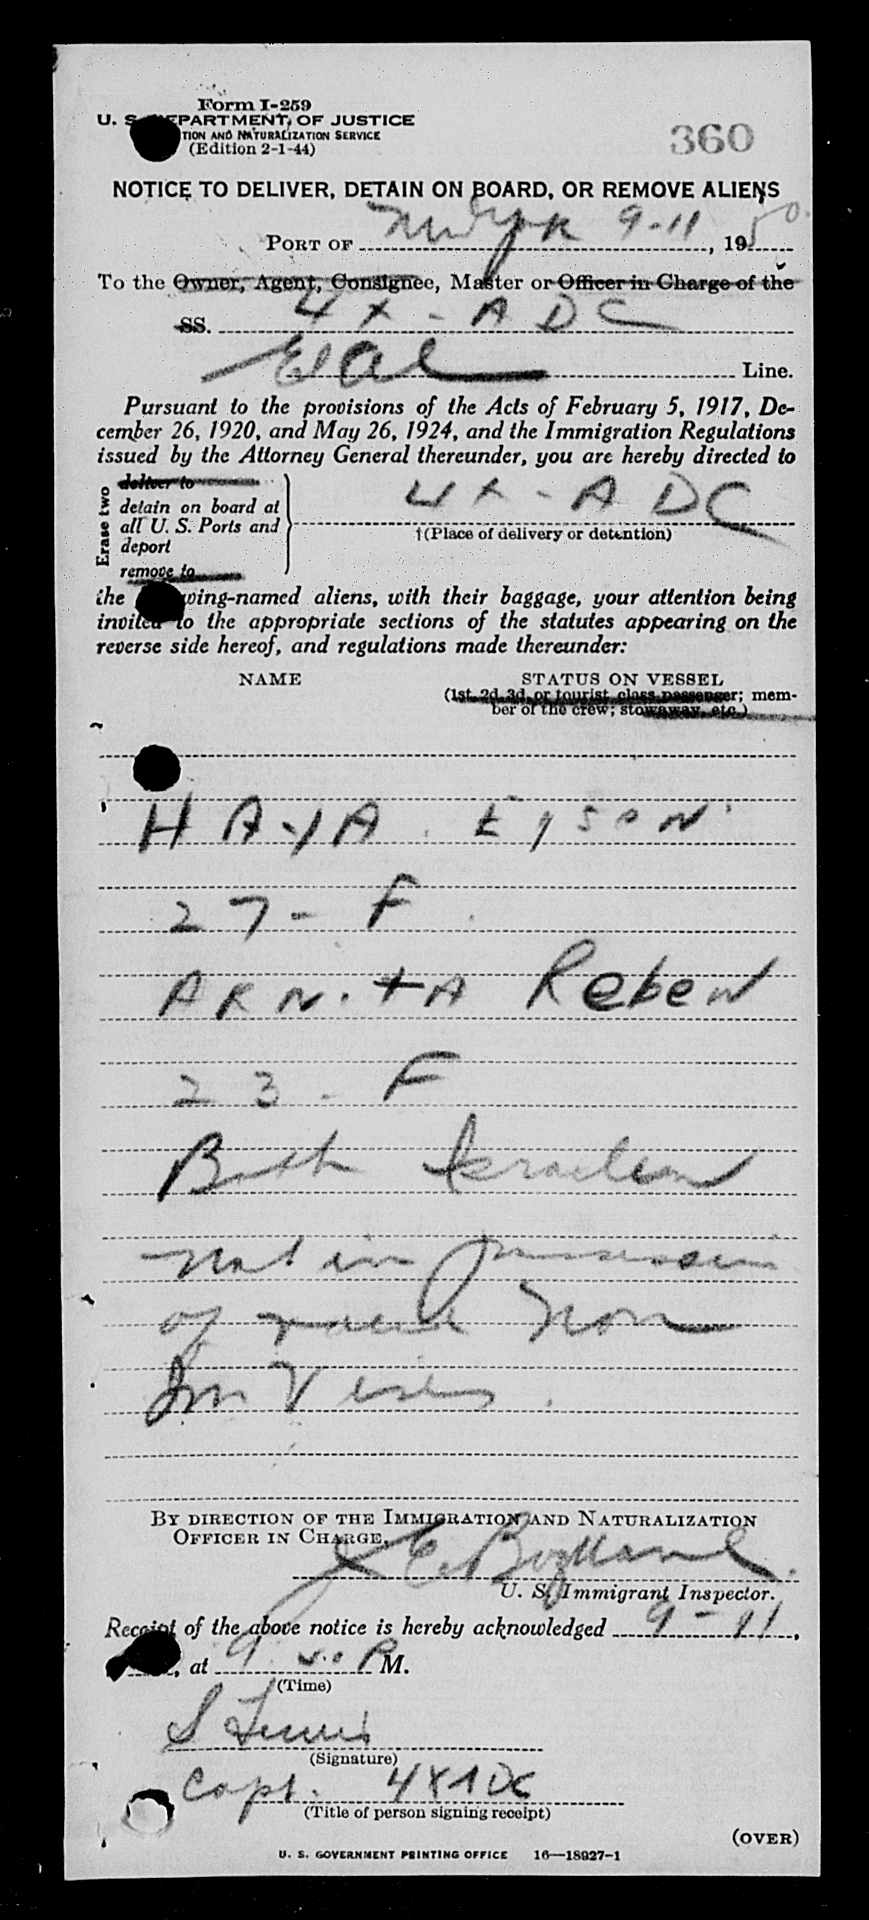 Form I-259
U. S. DEPARTMENT OF JUSTICE
360
TION AND NATURALIZATION SERVICE
(Edition 2-1-44)
NOTICE TO DELIVER, DETAIN ON BOARD, OR REMOVE ALIENS
PORT OF New York 9-11, 1950.
To the Owner, Agent, Consignee, Master or Officer in Charge of the
SS. 4X-ADC
El Al Line.
Pursuant to the provisions of the Acts of February 5, 1917, De-
cember 26, 1920, and May 26, 1924, and the Immigration Regulations
issued by the Attorney General thereunder, you are hereby directed to
Erase two
deliver to
detain on board at
all U. S. Ports and
deport
remove to
4X-ADC
†(Place of delivery or detention)
the following-named aliens, with their baggage, your attention being
invited to the appropriate sections of the statutes appearing on the
reverse side hereof, and regulations made thereunder:
NAME STATUS ON VESSEL
(1st, 2d, 3d, or tourist class passenger; mem-
ber of the crew; stowaway, etc.)
HAYA EYSON
27-F
Reben
23-F
Both Israelean
not in possession
of valid Non
Im Visas.
BY DIRECTION OF THE IMMIGRATION AND NATURALIZATION
OFFICER IN CHARGE,
U. S. Immigrant Inspector.
Receipt of the above notice is hereby acknowledged 9-11,
, at 9 P M.
(Time)
S
(Signature)
Capt. 4XADC
(Title of person signing receipt)
(OVER)
U. S. GOVERNMENT PRINTING OFFICE 16—18927-1